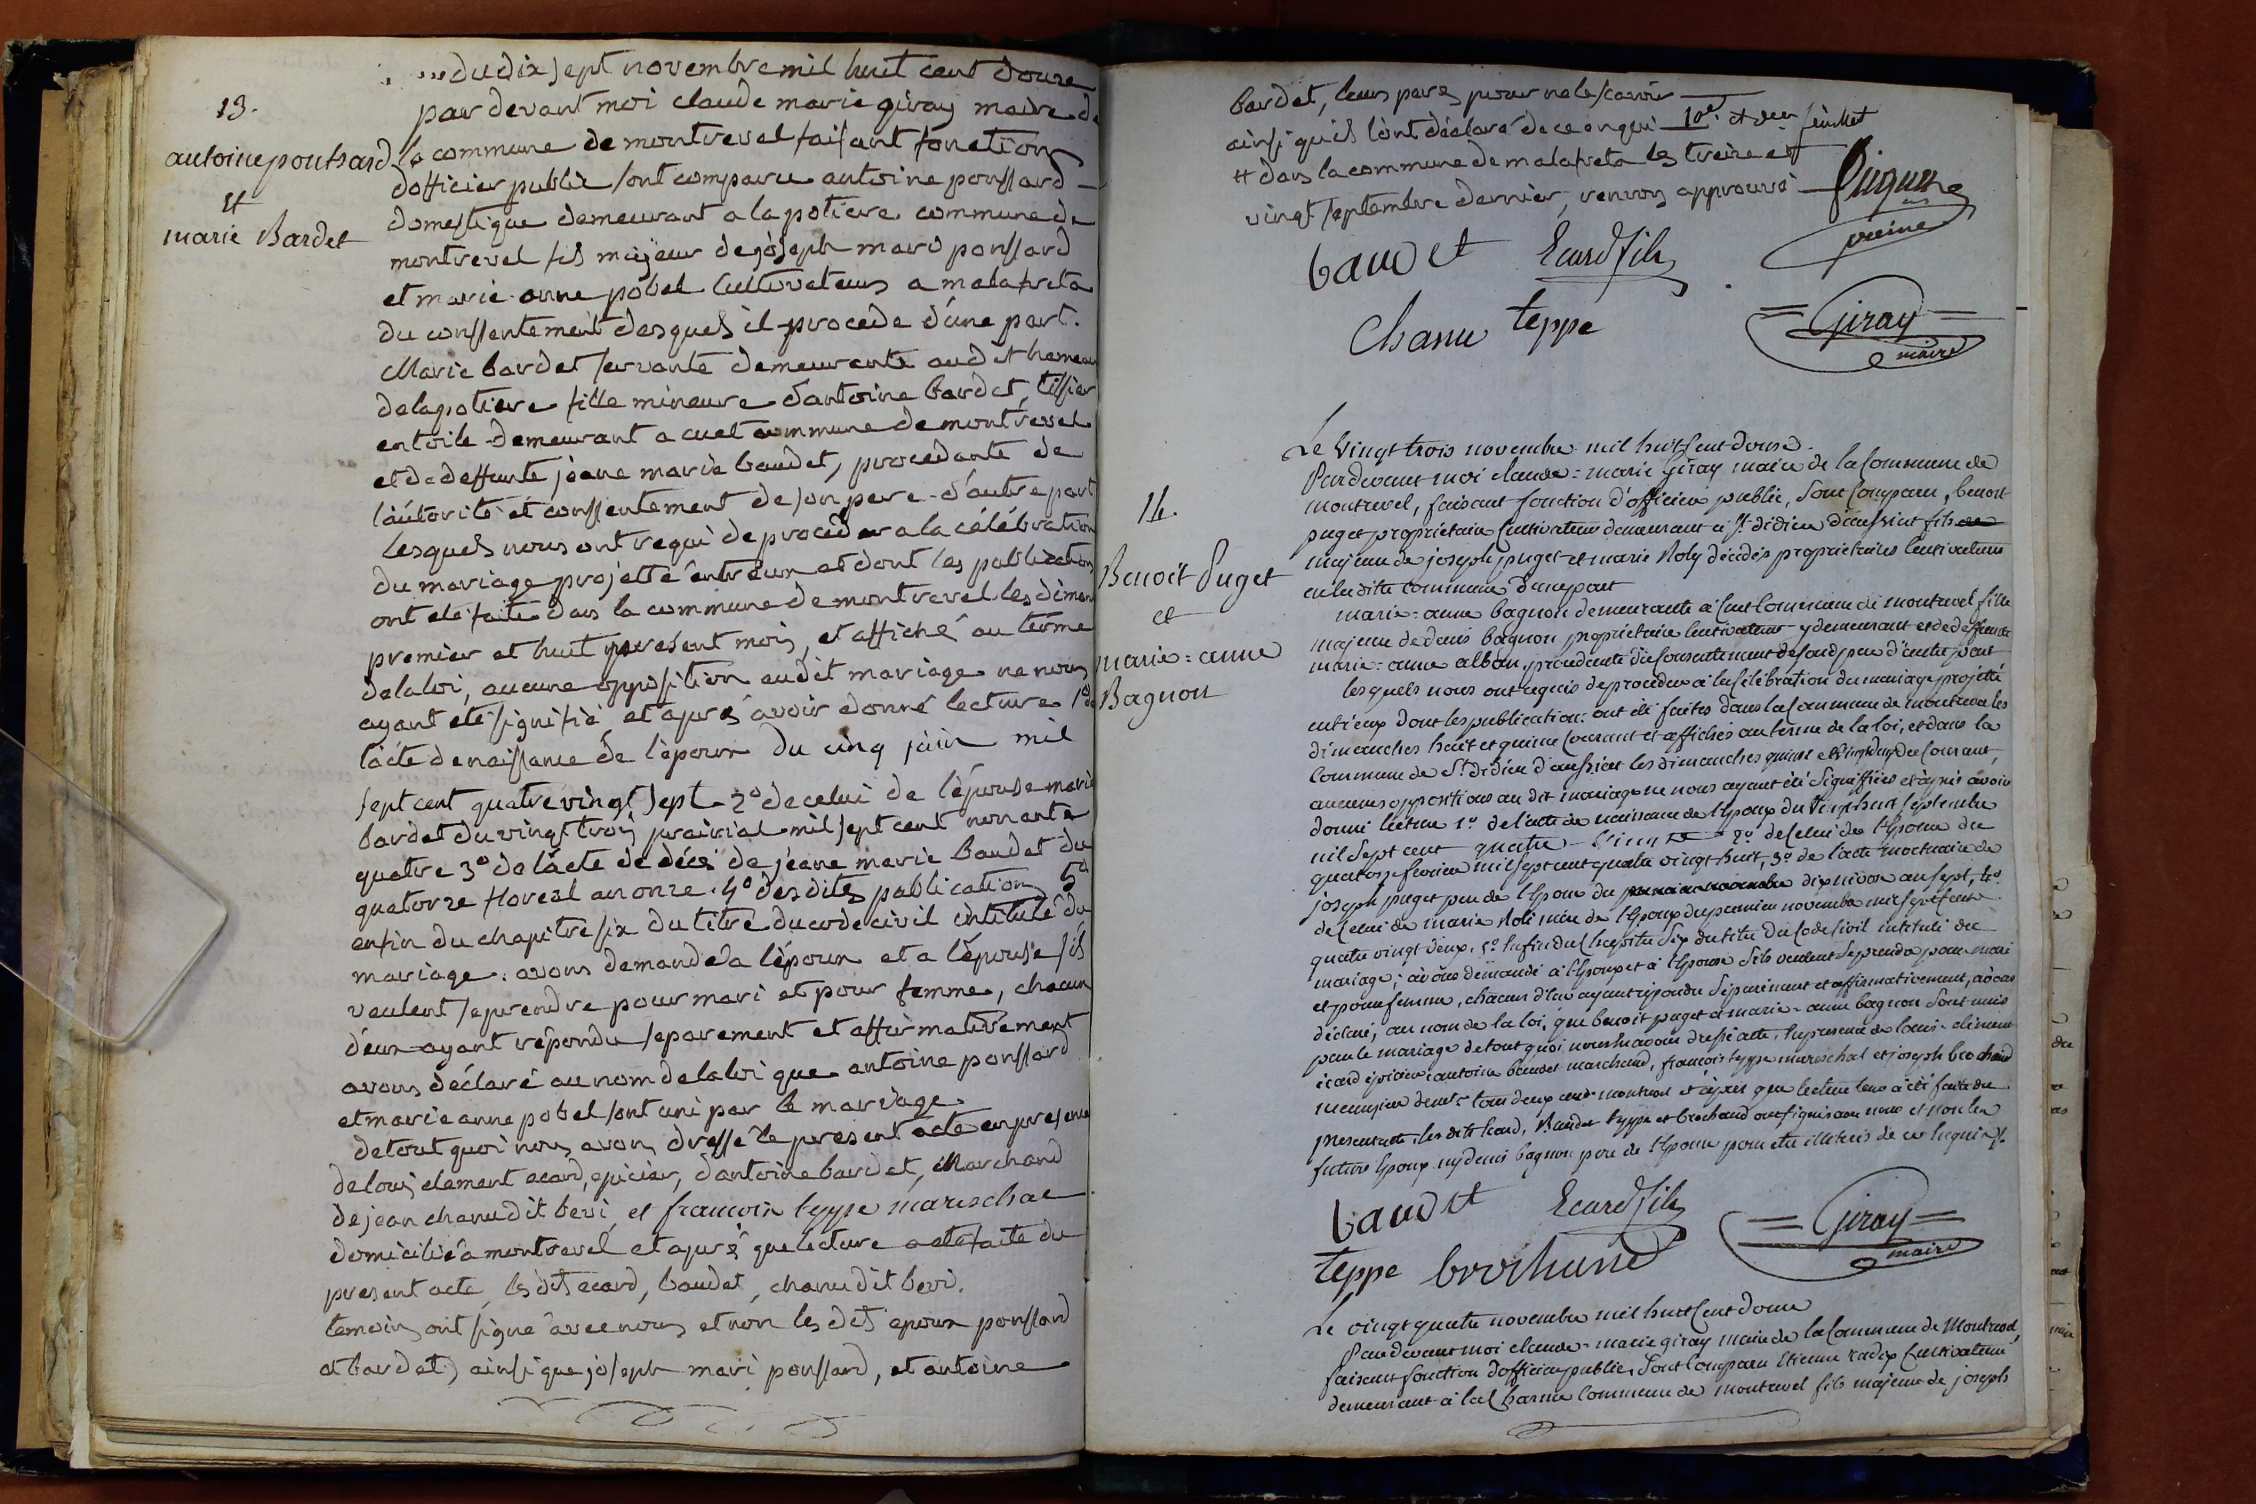 13.
antoine poussard
et
marie Bardet
du dix sept novembre mil huit cent douze
par devant moi claude marie giray maire de
la commune de montrevel faisant fonction
dofficier public sont comparu antoine poussard
domestique demeurant a la potiere commune de
montrevel fils majeur de joseph marie poussard
et marie anne pobel cultivateurs a malafreta
du consentement desquels il procede d'une part.
Marie bardet servante demeurante audit hameau
de la potiere fille mineure d'antoine bardet, tissier
en toile demeurant a cuet commune de montrevel
et de deffunte jeane marie baudet, procedante de
l'autorité et consentement de son pere d'autre part
lesquels nous ont requi de proceder a la célébration
du mariage projetté entr'eux et dont les publications
ont été faite dans la commune de montrevel les diman
premier et huit present mois, et affiché au terme
de la loi, aucune opposition audit mariage ne nous
ayant été signifié et après avoir donné lecture 1º de
l'acte de naissance de l'epoux du cinq juin mil
sept cent quatre vingt sept 2º de celui de l'épouse marie
bardet du vingt trois prairial mil sept cent nonante
quatre 3º de l'acte de décès de jeane marie baudet du
quatorze floreal an onze. 4º desdites publication 5º
enfin du chapitre six du titre du code civil intitulé du
mariage. avons demandé a l'époux et a l'épouse s'ils
veulent se prendre pour mari et pour femme, chacun
d'eux ayant répondu separement et affirmativement
avons déclaré au nom de la loi que antoine poussard
et marie anne pobel sont uni par le mariage.
de tout quoi nous avons dressé le present acte en presence
de louis clement ecard, epicier, d'antoine baudet, Marchand
de jean chanu dit bevi et francois teppe mareschal
domicilié a montrevel et après que lecture a eté faite du
present acte, les dits ecard, baudet, chanu dit bevi.
temoins ont signé avec nous et non les dits epoux poussard
et bardet, ainsi que joseph mari poussard, et antoine
bardet, leurs peres pour ne le scavoir
ainsi qu'ils l'ont déclaré de ce enquis
# dans la commune de malafreta les treize et
vingt septembre dernier, renvoi approuvé
10e. et feuillet
baudet Ecard fils
chanu teppe
Giray
maire
14.
Benoit Puget
et
marie=anne
Bagnon
Le vingt trois novembre mil huit cent douze.
Pardevant moi claude=marie Giray maire de la Commune de
montrevel, faisant fonction d'officier public, sont comparu, benoit
puget propriétaire cultivateur demeurant à St. didier d'aussiat fils
majeur de joseph puget et marie Roly décédés propriétaires cultivateurs
en la dite commune d'une part
marie=anne bagnon demeurante à Cuet Commune de montrevel fille
majeure de denis bagnon propriétaire cultivateur y demeurant et de deffunte
marie=anne alban, procedante du consentement de son dit pere d'autre part
lesquels nous ont requis de proceder à la Célébration du mariage projetté
entr'eux dont les publications ont été faites dans la Commune de montrevel les
dimanches huit et quinze Courant et affichés au terme de la loi, et dans la
Commune de St. didier d'aussiat les dimanches quinze et vingt deux du Courant,
aucunes oppositions au dit mariage ne nous ayant été signiffiées et après avoir
donné lecture 1º de l'acte de naissance de l'Epoux du vingt huit septembre
mil sept cent quatre vingt 2º de Celui de l'Epouse du
quatorze fevrier mil sept cent quatre vingt huit, 3º de l'acte mortuaire de
joseph puget pere de l'Epoux du dix nivose an sept, 4º
de Celui de marie Roli mère de l'Epoux du premier novembre mil sept cent
quatre vingt deux. 5º enfin du Chapitre Six du titre du Code Civil intitulé du
mariage; avons demandé à l'Epoux et à l'Epouse s'ils veulent se prendre pour mari
et pour femme, chacun d'eux ayant répondu séparément et affirmativement, avons
déclaré, au nom de la loi, que benoit puget et marie=anne bagnon sont unis
par le mariage de tout quoi nous avons dressé acte, en présence de louis=clément
écard épicier, antoine baudet marchand, francois teppe mareschal et joseph brochand
menuisier
présent acte, les dits Ecard, Baudet teppe et brochand ont signé avec nous et non les
futurs Epoux ny denis bagnon pere de l'Epouse pour etre illiterés de ce enquis.
baudet Ecard fils
teppe brochand
Giray
maire
Le vingt quatre novembre mil huit cent douze
Pardevant moi claude=marie giray maire de la Commune de Montrevel,
faisant fonction d'officier public, sont comparu Etienne radix Cultivateur
demeurant à la Charme Commune de montrevel fils majeur de joseph